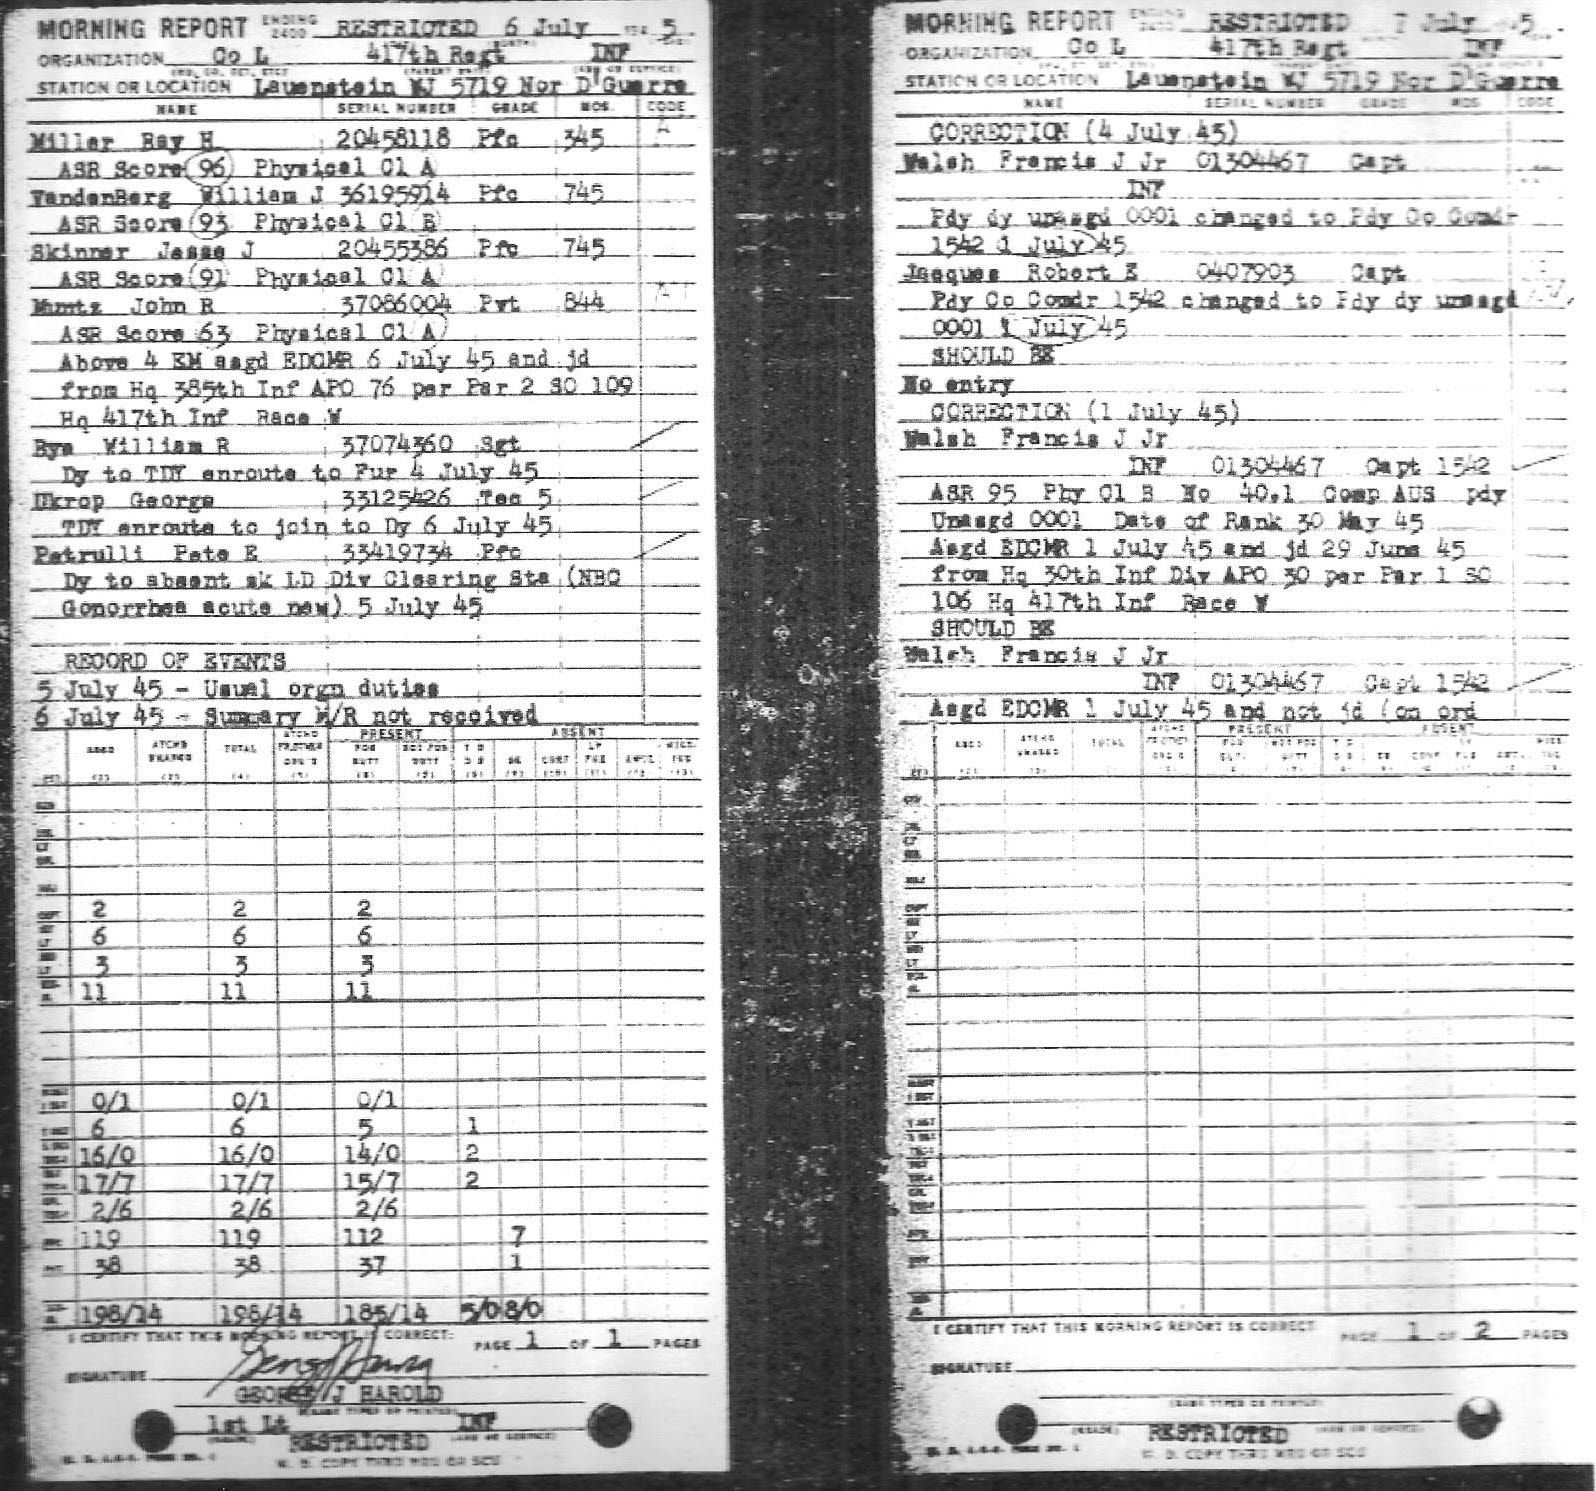 MORNING REPORT ENDING 2400 RESTRICTED 6 July 5
ORGANIZATION Co L 417th Regt INF
STATION OR LOCATION Lauenstein WJ 5719 Nor D'Guerre
NAME SERIAL NUMBER GRADE MOS. CODE
Miller Ray H 20458118 Pfc 345
ASR Score 96 Physical Cl A
VandenBerg William J 36195914 Pfc 745
ASR Score 93 Physical Cl B
Skinner Jesse J 20455386 Pfc 745
ASR Score 91 Physical Cl A
Muntz John R 37086004 Pvt 844
ASR Score 63 Physical Cl A
Above 4 EM asgd EDCMR 6 July 45 and jd
from Hq 385th Inf APO 76 per Par 2 SO 109
Hq 417th Inf Race W
Bye William R 37074360 Sgt
Dy to TDY enroute to Fur 4 July 45
Ukrop George 33125426 Tec 5
TDY enroute to join to Dy 6 July 45
Petrulli Pete E 33419734 Pfc
Dy to absent sk LD Div Clearing Sta (NBC
Gonorrhea acute new) 5 July 45
RECORD OF EVENTS
5 July 45 - Usual orgn duties
6 July 45 - Summary M/R not received
ASGD ATCHD UNASGD TOTAL ATCHD FR OTHER ORG'S PRESENT FOR DUTY NOT FOR DUTY ABSENT T D D S SK CONF LV FUR AWOL MISC
2 2 2
6 6 6
3 3 3
11 11 11
0/1 0/1 0/1
6 6 5 1
16/0 16/0 14/0 2
17/7 17/7 15/7 2
2/6 2/6 2/6
119 119 112 7
38 38 37 1
198/14 198/14 185/14 5/0 8/0
I CERTIFY THAT THIS MORNING REPORT IS CORRECT: PAGE 1 OF 1 PAGES
SIGNATURE
GEORGE J HAROLD
(NAME TYPED OR PRINTED)
1st Lt INF
(GRADE) RESTRICTED (ARM OR SERVICE)
W. D. COPY THRU MRU OR SCU
MORNING REPORT ENDING 2400 RESTRICTED 7 July 5
ORGANIZATION Co L 417th Regt INF
STATION OR LOCATION Lauenstein WJ 5719 Nor D'Guerre
NAME SERIAL NUMBER GRADE MOS CODE
CORRECTION (4 July 45)
Walsh Francis J Jr 01304467 Capt
INF
Pdy dy unasgd 0001 changed to Pdy Co Comdr
1542 1 July 45
Jacques Robert E 0407903 Capt
Pdy Co Comdr 1542 changed to Pdy dy unasgd
0001 1 July 45
SHOULD BE
No entry
CORRECTION (1 July 45)
Walsh Francis J Jr
INF 01304467 Capt 1542
ASR 95 Phy Cl B No 40.1 Comp AUS pdy
Unasgd 0001 Date of Rank 30 May 45
Asgd EDCMR 1 July 45 and jd 29 June 45
from Hq 30th Inf Div APO 30 per Par 1 SO
106 Hq 417th Inf Race W
SHOULD BE
Walsh Francis J Jr
INF 01304467 Capt 1542
Asgd EDCMR 1 July 45 and not jd (on ord
I CERTIFY THAT THIS MORNING REPORT IS CORRECT PAGE 1 OF 2 PAGES
SIGNATURE
(NAME TYPED OR PRINTED)
(GRADE) RESTRICTED
W. D. COPY THRU MRU OR SCU